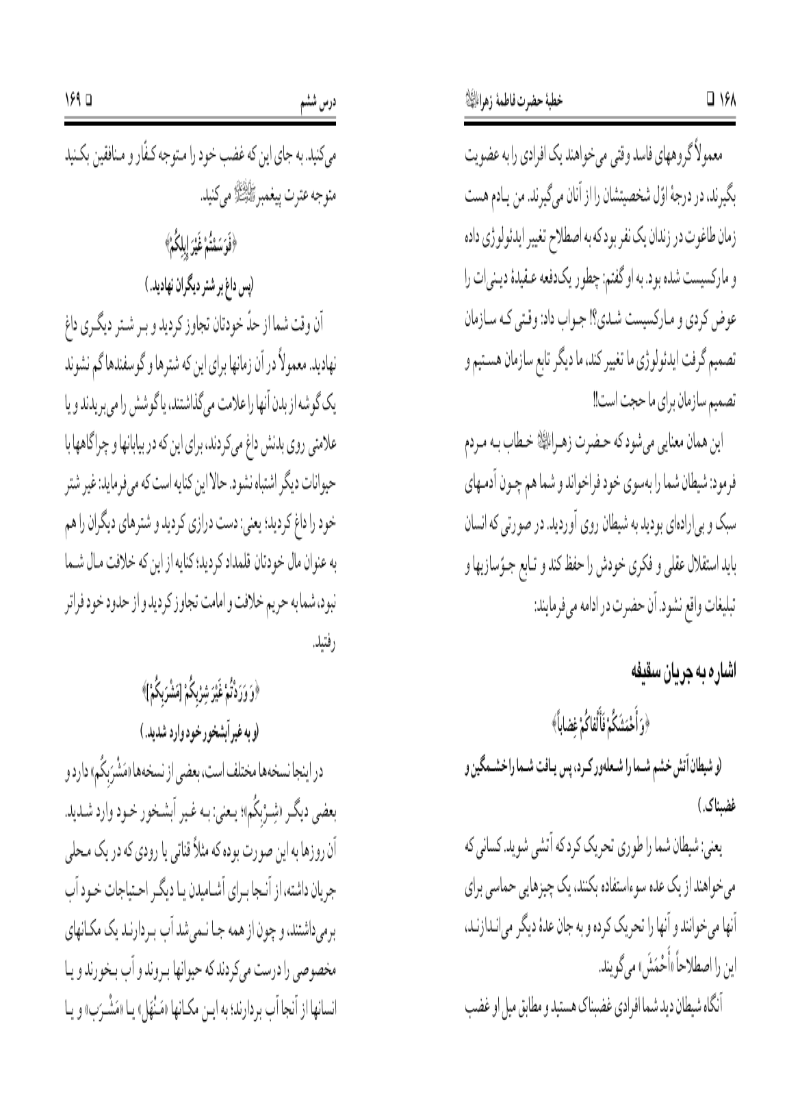 ۱۶۸ □ خطبهٔ حضرت فاطمهٔ زهرا
معمولاً گروههای فاسد وقتی می‌خواهند یک افرادی را به عضویت
بگیرند، در درجهٔ اوّل شخصیتشان را از آنان می‌گیرند. من یـادم هست
زمان طاغوت در زندان یک نفر بود که به اصطلاح تغییر ایدئولوژی داده
و مارکسیست شده بود. به او گفتم: چطور یک‌دفعه عـقیدهٔ دیـنی‌ات را
عوض کردی و مـارکسیست شـدی؟! جـواب داد: وقـتی کـه سـازمان
تصمیم گرفت ایدئولوژی ما تغییر کند، ما دیگر تابع سازمان هسـتیم و
تصمیم سازمان برای ما حجت است!!
این همان معنایی می‌شود که حـضرت زهـرا خـطاب بـه مـردم
فرمود: شیطان شما را به‌سوی خود فراخواند و شما هم چـون آدمـهای
سبک و بی‌اراده‌ای بودید به شیطان روی آوردید. در صورتی که انسان
باید استقلال عقلی و فکری خودش را حفظ کند و تـابع جـوّسازیها و
تبلیغات واقع نشود. آن حضرت در ادامه می‌فرمایند:
اشاره به جریان سقیفه
﴿وَ أَحْمَشَكُمْ فَأَلْفاكُمْ غِضاباً﴾
(و شیطان آتش خشم شـما را شـعله‌ور کـرد، پس یـافت شـما را خشـمگین و
غضبناک.)
یعنی: شیطان شما را طوری تحریک کرد که آتشی شوید. کسانی که
می‌خواهند از یک عده سوءاستفاده بکنند، یک چیزهایی حماسی برای
آنها می‌خوانند و آنها را تحریک کرده و به جان عدهٔ دیگر می‌انـدازنـد،
این را اصطلاحاً «أَحْمَشَ» می‌گویند.
آنگاه شیطان دید شما افرادی غضبناک هستید و مطابق میل او غضب
درس ششم □ ۱۶۹
می‌کنید. به جای این که غضب خود را مـتوجه کـفّار و مـنافقین بکـنید
متوجه عترت پیغمبر می‌کنید.
﴿فَوَسَمْتُمْ غَيْرَ إِبِلِكُمْ﴾
(پس داغ بر شتر دیگران نهادید.)
آن وقت شما از حدّ خودتان تجاوز کردید و بـر شـتر دیگـری داغ
نهادید. معمولاً در آن زمانها برای این که شترها و گوسفندها گم نشوند
یک گوشه از بدن آنها را علامت می‌گذاشتند، یا گوشش را می‌بریدند و یا
علامتی روی بدنش داغ می‌کردند، برای این که در بیابانها و چراگاهها با
حیوانات دیگر اشتباه نشود. حالا این کنایه است که می‌فرماید: غیر شتر
خود را داغ کردید؛ یعنی: دست درازی کردید و شترهای دیگران را هم
به عنوان مال خودتان قلمداد کردید؛ کنایه از این که خلافت مـال شـما
نبود، شما به حریم خلافت و امامت تجاوز کردید و از حدود خود فراتر
رفتید.
﴿وَ وَرَدْتُمْ غَيْرَ شِرْبِكُمْ [مَشْرَبِكُمْ]﴾
(و به غیر آبشخور خود وارد شدید.)
در اینجا نسخه‌ها مختلف است، بعضی از نسخه‌ها «مَشْرَبِكُم» دارد و
بعضی دیگـر «شِـرْبِكُم»؛ یـعنی: بـه غـیر آبشـخور خـود وارد شـدید.
آن روزها به این صورت بوده که مثلاً قناتی یا رودی که در یک مـحلی
جریان داشته، از آنـجا بـرای آشامیدن یـا دیگـر احـتیاجات خـود آب
برمی‌داشتند، و چون از همه جـا نـمی‌شد آب بـردارند یک مکـانهای
مخصوصی را درست می‌کردند که حیوانها بـروند و آب بـخورند و یـا
انسانها از آنجا آب بردارند؛ به ایـن مکـانها «مَـنْهَل» یـا «مَشْـرَب» و یـا